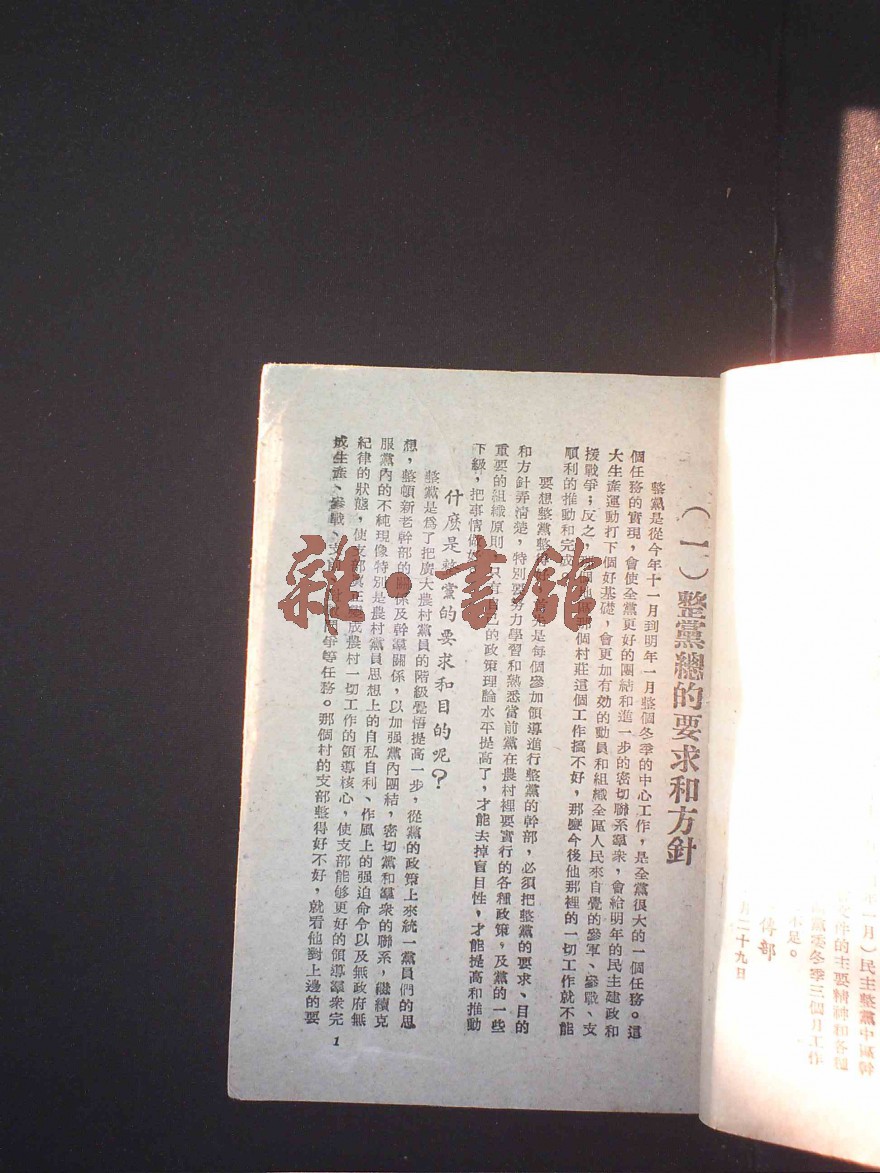 （一）整黨總的要求和方針
整黨是從今年十一月到明年一月整個冬季的中心工作，是全黨很大的一個任務。這
個任務的實現，會使全黨更好的團結和進一步的密切聯系羣衆，會給明年的民主建政和
大生產運動打下個好基礎，會更加有效的動員和組織全區人民來自覺的參軍、參戰、支
援戰爭；反之，那個村莊這個工作搞不好，那麼今後他那裡的一切工作就不能
順利的推動和完成
要想整黨整得好，首先是每個參加領導進行整黨的幹部，必須把整黨的要求、目的
和方針弄清楚，特別要努力學習和熟悉當前黨在農村裡要實行的各種政策，及黨的一些
重要的組織原則，只有自己的政策理論水平提高了，才能去掉盲目性，才能提高和推動
下級，把事情做好
什麼是整黨的要求和目的呢？
整黨是爲了把廣大農村黨員的階級覺悟提高一步，從黨的政策上來統一黨員們的思
想，整頓新老幹部的關係及幹羣關係，以加強黨內團結，密切黨和羣衆的聯系，繼續克
服黨內的不純現像特別是農村黨員思想上的自私自利、作風上的强迫命令以及無政府無
紀律的狀態，使支部真正變成農村一切工作的領導核心，使支部能够更好的領導羣衆完
成生產、參戰、支前、等任務。那個村的支部整得好不好，就看他對上邊的要
1
年一月）民主整黨中區幹
文件的主要精神和各種
黨委冬季三個月工作
不足。
傳部
月二十九日
雜·書館